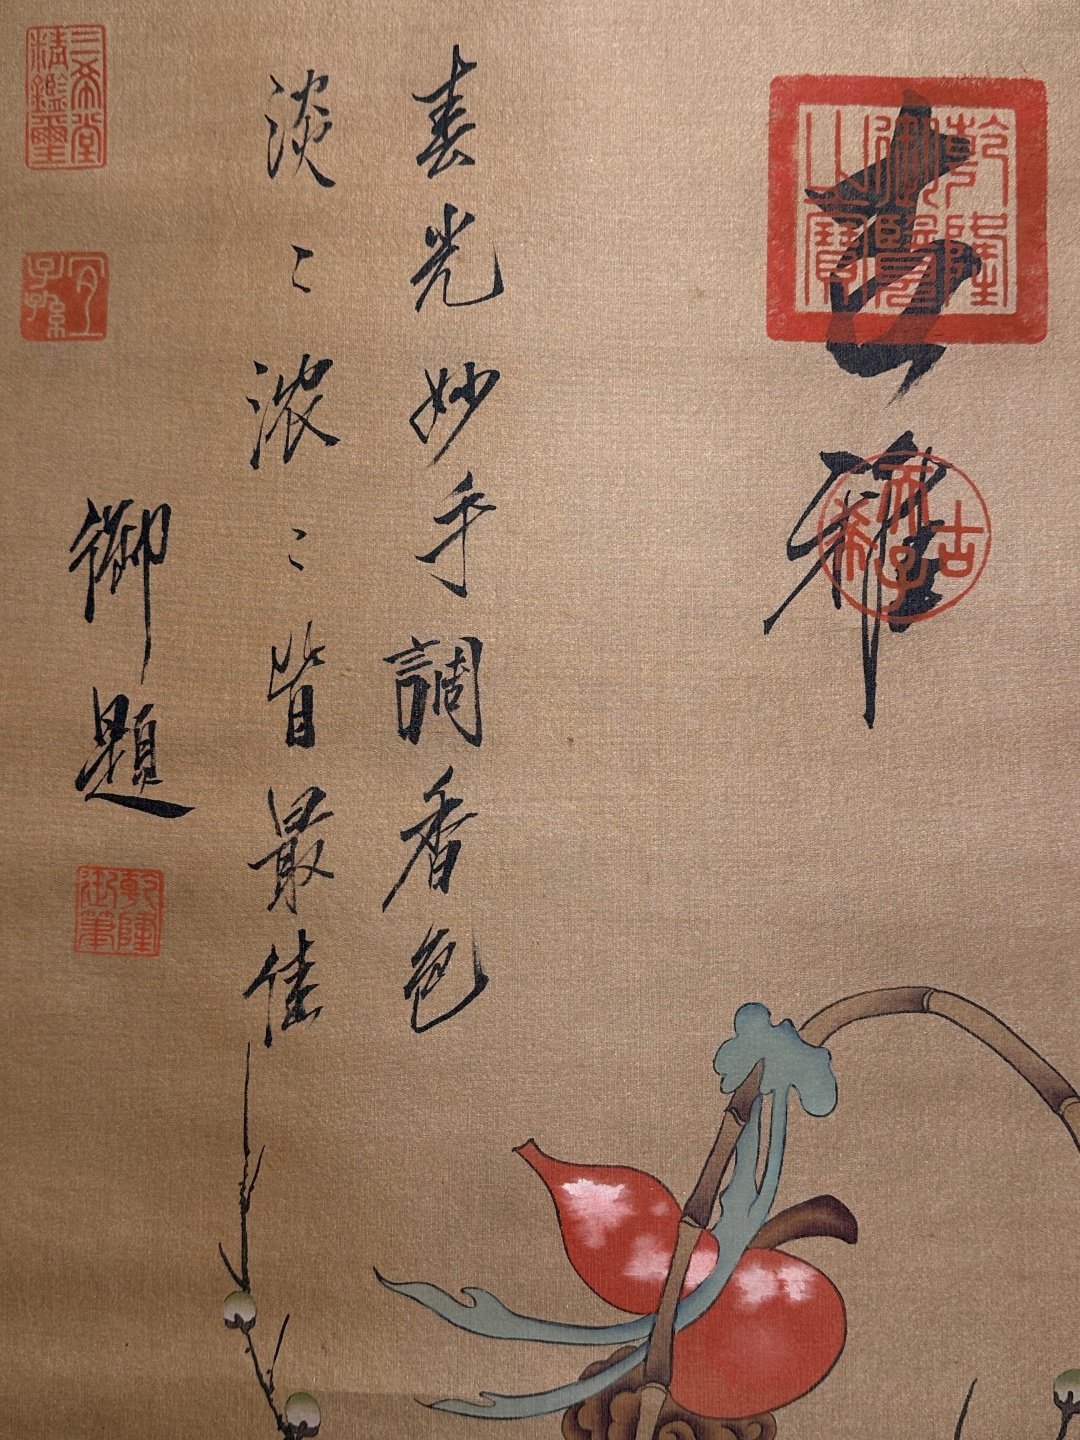 乾隆御覽之寶
古希天子
春光妙手調香色
淡〻浓〻皆最佳
御題
乾隆御筆
三希堂精鑑璽
宜子孫